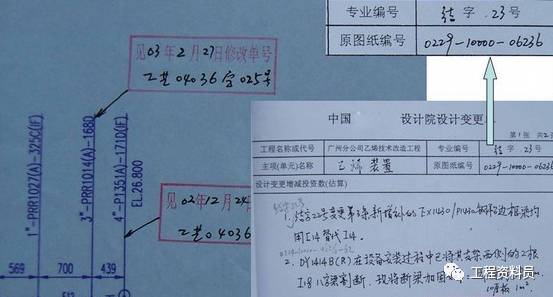 专业编号 结字.23号
原图纸编号 0229-10000-06236
见03年2月27日修改单号
乙芝04036字025号
见02年12月24日
乙芝04036
1"-PRR1027(A)-325C(IF)
3"-PRR1014(A)-1680
4"-P1351(A)-171D(IF)
EL.26.800
569 700 439
中国 设计院设计变更
第1张 共2
工程名称或代号 广州分公司乙烯技术改造工程 专业编号 结字.23号
主项(单元)名称 乙烯装置 原图纸编号 0229-10000-06236
设计变更增减投资数(估算)
1. 结字22号变更第3条新增补的EX1430/P1430
用I14替代I14.
2. DY1414B(R)在设备安装过程中已将其支架西侧的2根
I18八字梁割断,现将断梁加固
工程资料员